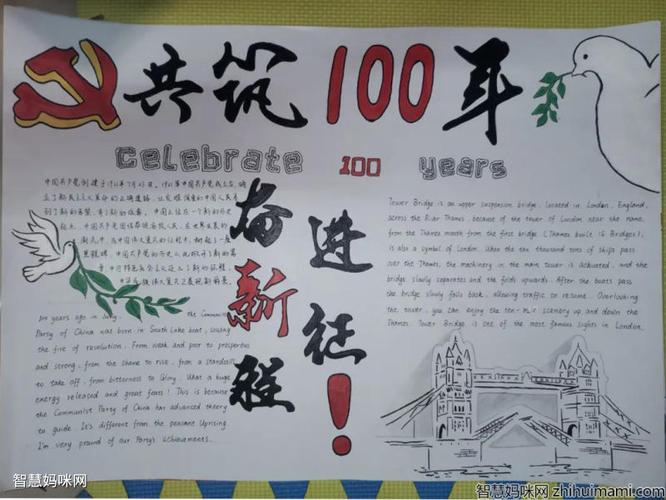 共筑100年
celebrate 100 years
奋进新征程!
中国共产党创建于1921年7月23日。1921年中国共产党成立后,确
立了新民主主义革命的正确道路,让灾难深重的中国人民看
到了新的希望、有了新的依靠。中国
100 years ago in July, the Communist
Party of China was born in South Lake boat, sowing
the fire of revolution. From weak and poor to prosperous
and strong, from the shame to rise, from a standstill
to take off, from bitterness to Glory. What a huge
energy released and great feats! This is because
the Communist Party of China has advanced theory
to guide. It's different from the peasant Uprising.
I'm very pround of our Party's achievements.
Tower Bridge is an upper suspension bridge, located in London, England,
across the River Thames, because of the tower of London near the name,
from the Thames mouth from the first bridge (Thames built 15 Bridges),
is also a symbol of London. When the ten thousand tons of ships pass
over the Thames, the machinery in the main tower is activated, and the
bridge slowly separates and the folds upwards. After the boats pass
the bridge slowly falls back, allowing traffic to resume. Overlooking
the tower, you can enjoy the ten-mile scenery up and down the
Thames. Tower Bridge is one of the most famous sights in London.
智慧妈咪网
智慧妈咪网 zhihuimami.com